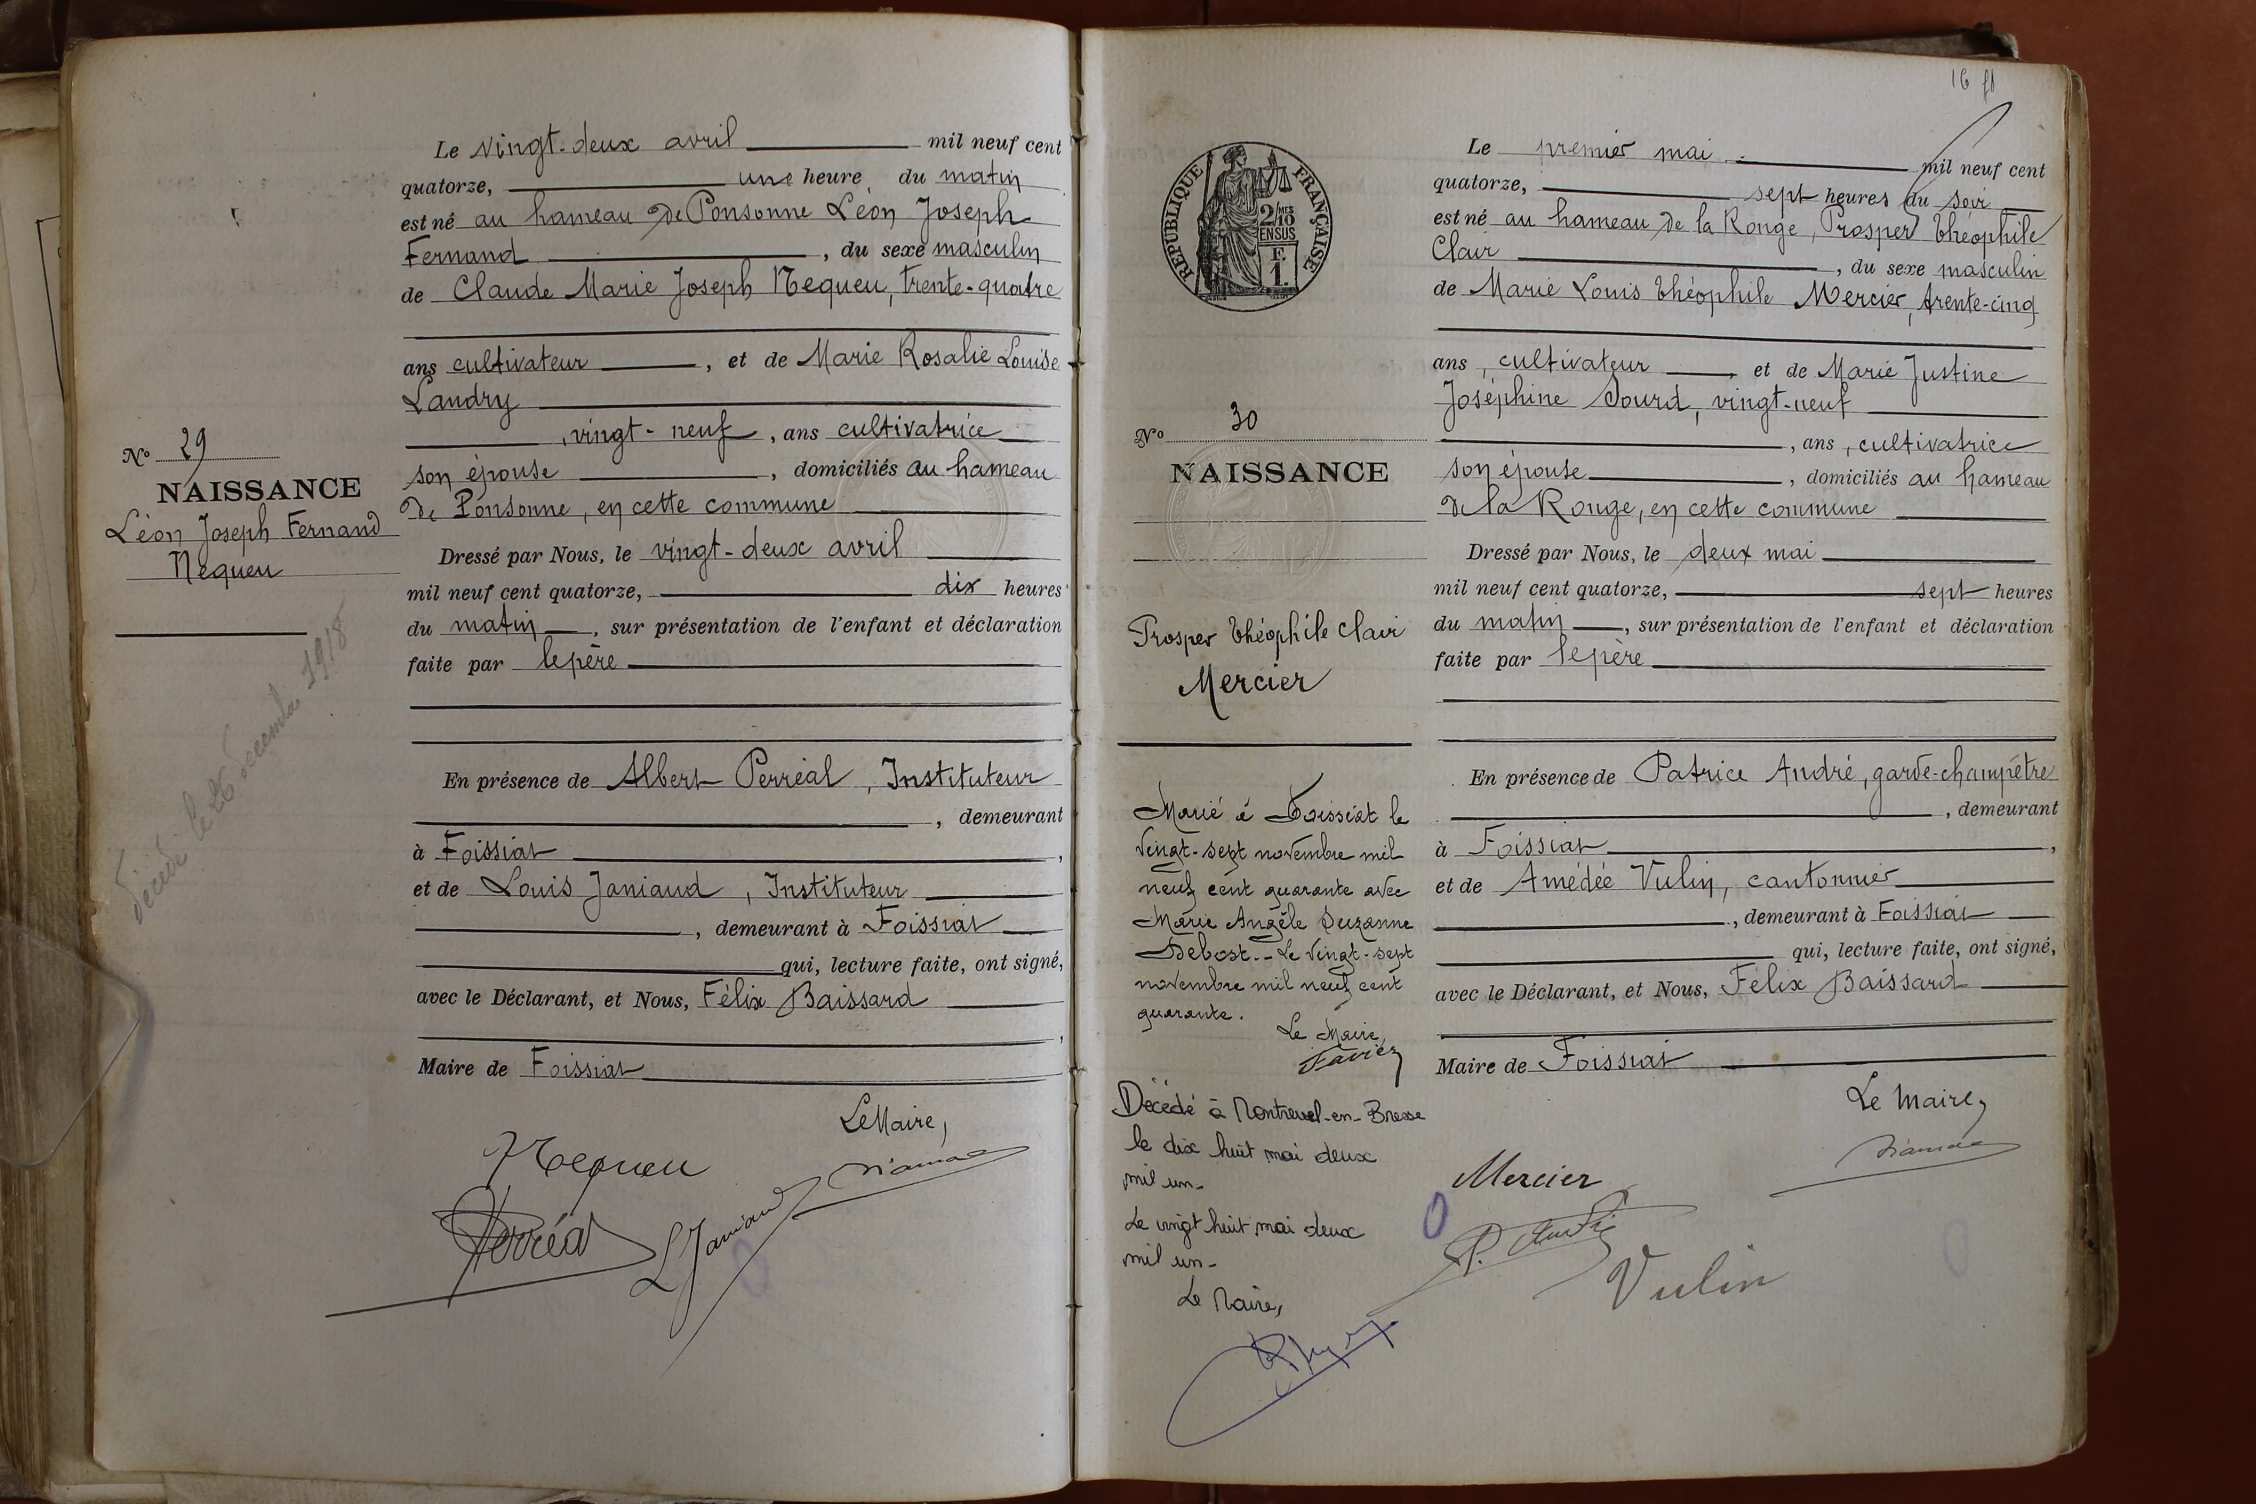 Le vingt-deux avril mil neuf cent
quatorze, une heure du matin
est né au hameau de Ponsonne Léon Joseph
Fernand , du sexe masculin
de Claude Marie Joseph Nequeu, trente-quatre
ans cultivateur , et de Marie Rosalie Louise
Landry
, vingt-neuf , ans cultivatrice
son épouse , domiciliés au hameau
de Ponsonne, en cette commune
Dressé par Nous, le vingt-deux avril
mil neuf cent quatorze, dix heures
du matin , sur présentation de l'enfant et déclaration
faite par le père
En présence de Albert Perréal, Instituteur
, demeurant
à Foissiat ,
et de Louis Janiaud, Instituteur
, demeurant à Foissiat
qui, lecture faite, ont signé,
avec le Déclarant, et Nous, Félix Baissard
,
Maire de Foissiat
Le Maire,
Nequeu
Perréal
L Janiaud
No 29
NAISSANCE
Léon Joseph Fernand
Nequeu
Décédé le 26 décembre 1918
16
RÉPUBLIQUE FRANÇAISE
2/10 MES
EN SUS
F.
1.
No 30
NAISSANCE
Prosper Théophile Clair
Mercier
Marié à Foissiat le
vingt-sept novembre mil
neuf cent quarante avec
Marie Angèle Suzanne
Debost.- Le vingt-sept
novembre mil neuf cent
quarante.
Le Maire,
Favier
Décédé à Montrevel-en-Bresse
le dix huit mai deux
mil un-
Le vingt huit mai deux
mil un-
Le Maire,
Le premier mai mil neuf cent
quatorze, sept heures du soir
est né au hameau de la Ronge, Prosper Théophile
Clair , du sexe masculin
de Marie Louis Théophile Mercier, trente-cinq
ans, cultivateur , et de Marie Justine
Joséphine Sourd, vingt-neuf
, ans, cultivatrice
son épouse , domiciliés au hameau
de la Ronge, en cette commune
Dressé par Nous, le deux mai
mil neuf cent quatorze, sept heures
du matin , sur présentation de l'enfant et déclaration
faite par le père
En présence de Patrice André, garde-champêtre
, demeurant
à Foissiat ,
et de Amédée Vulin, cantonnier
, demeurant à Foissiat
qui, lecture faite, ont signé,
avec le Déclarant, et Nous, Félix Baissard
Maire de Foissiat
Le Maire,
Mercier
P. André
Vulin